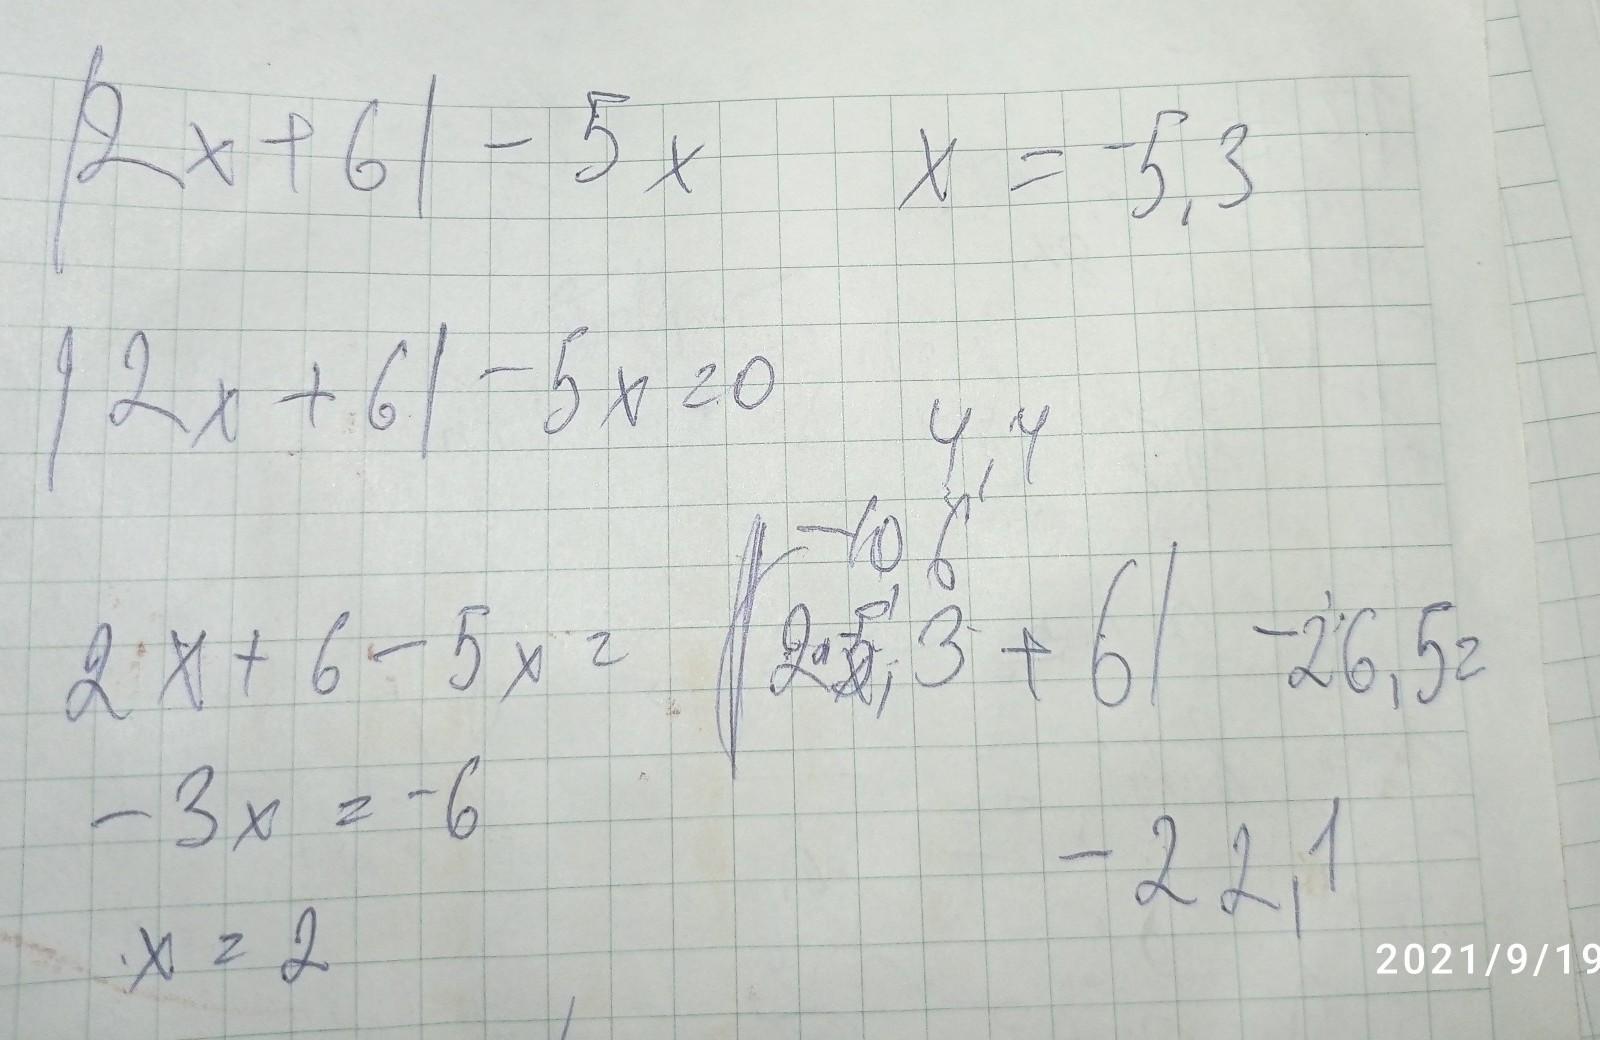 |2x+6| - 5x x = -5,3
|2x+6| - 5x = 0
4,4
-10,6
2x+6-5x = |2·5,3+6| -26,5=
-3x = -6
-22,1
x = 2
2021/9/19